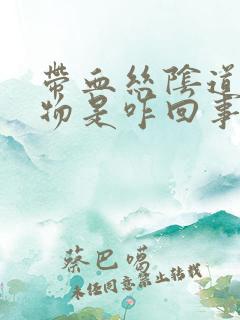 带血丝陰道
物是咋回事
蔡巴噶
未经同意禁止转载